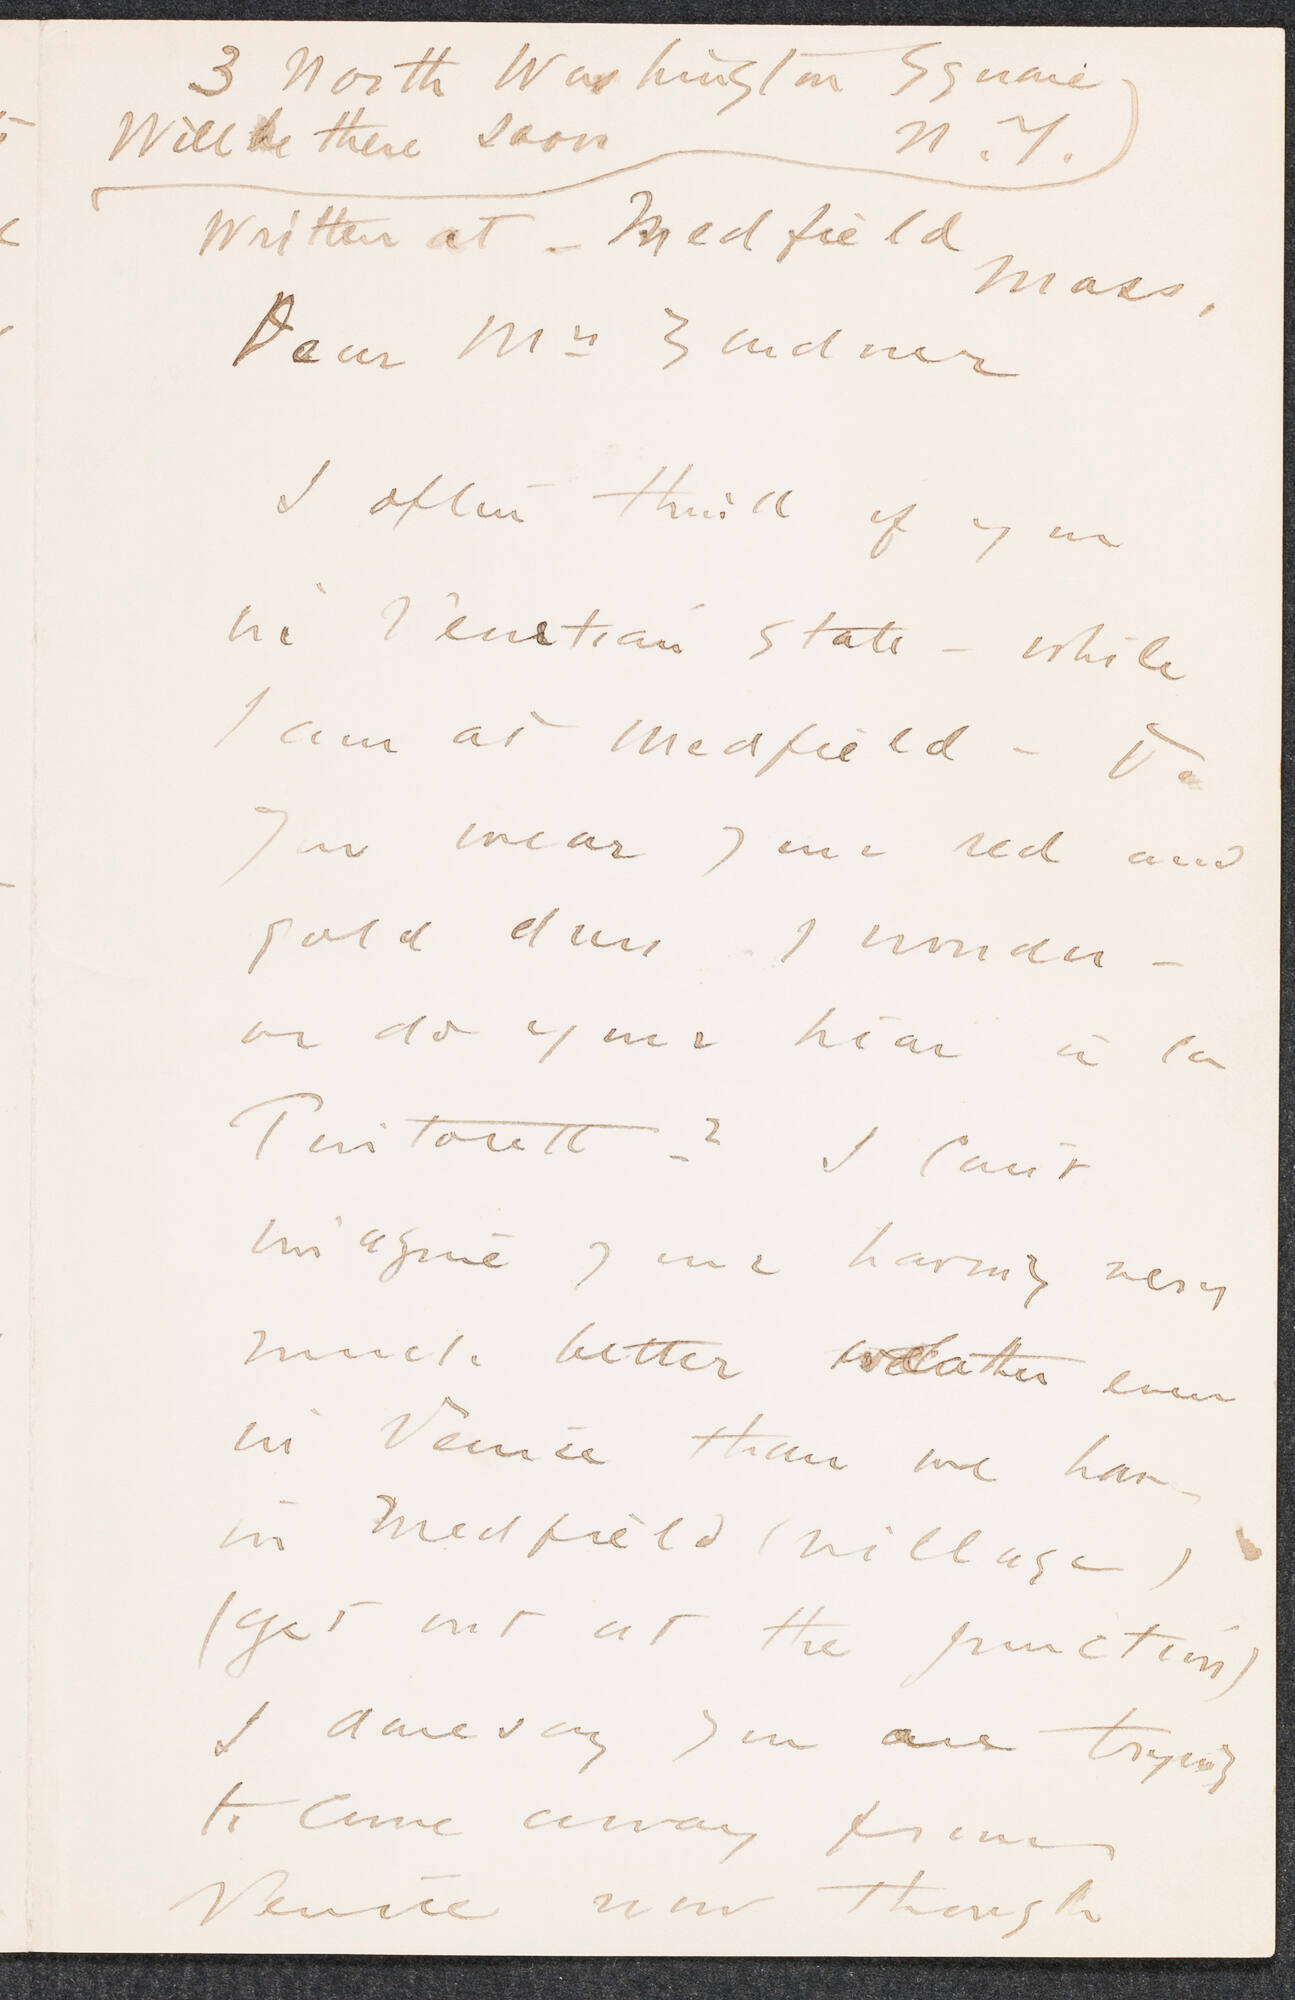 3 North Washington Square
Will be there soon N.Y.
Written at - Medfield
Mass.
Dear Mrs Gardner
I often think of you
in Venetian State - while
I am at Medfield - Do
you wear your red and
gold dress I wonder -
or do your hair à la
Tintorett -? I can't
imagine your having very
much better weather even
in Venice than we have
in Medfield (village)
(get out at the junction)
I daresay you are trying
to come away from
Venice now though